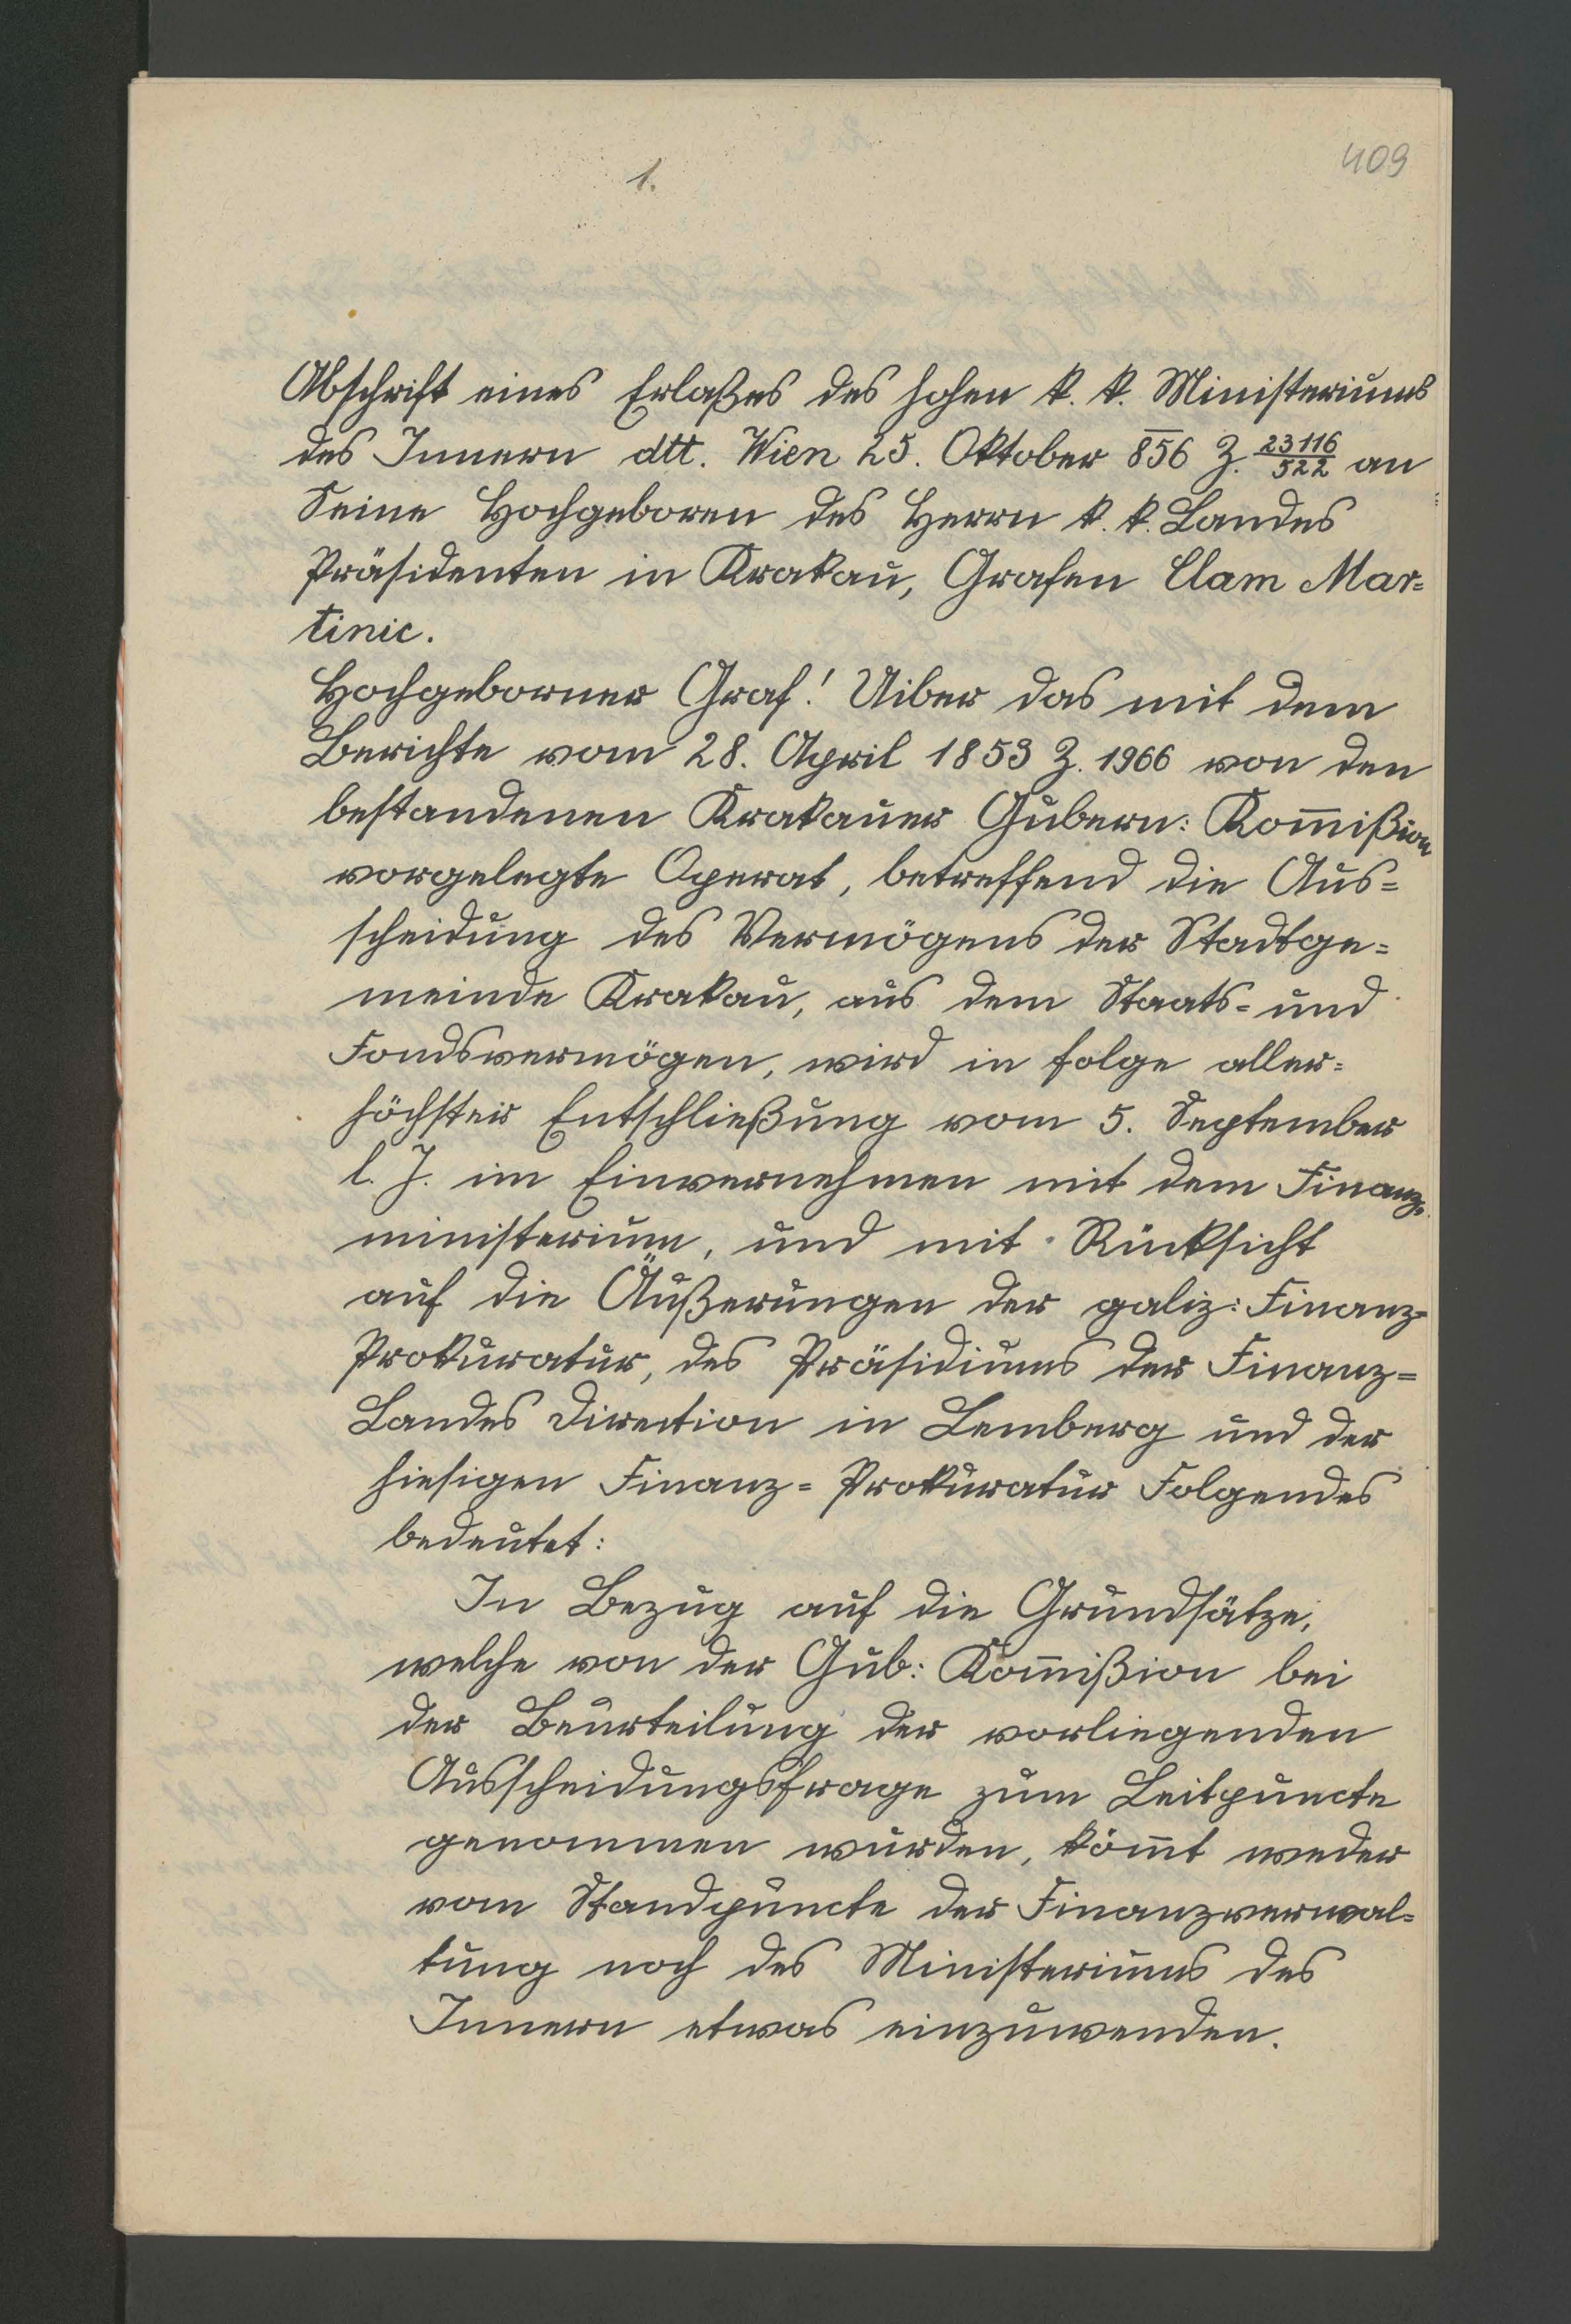 409
1.
Abschrift eines Erlaßes des hohen k. k. Ministeriums
des Innern dtt. Wien 25. Oktober 856 Z. 23116/522 an
Seine Hochgeboren des Herrn k. k. Landes
Präsidenten in Krakau, Grafen Clam Mar=
tinic.
Hochgeborner Graf! Uiber das mit dem
Berichte vom 28. April 1853 Z. 1966 von den
bestandenen Krakauer Gubern: Kom̅ißion
vorgelegte Operat, betreffend die Aus=
scheidung des Vermögens der Stadtge=
meinde Krakau, aus dem Staats= und
Fondsvermögen, wird in folge aller=
höchster Entschließung vom 5. September
l. J. im Einvernehmen mit dem Finanz=
ministerium, und mit Rücksicht
auf die Äußerungen der galiz: Finanz=
Prokuratur, des Präsidiums der Finanz=
Landes Direction in Lemberg und der
hiesigen Finanz= Prokuratur Folgendes
bedeutet:
In Bezug auf die Grundsätze,
welche von der Gub: Kom̅ißion bei
der Beurteilung der vorliegenden
Ausscheidungsfrage zum Leitpuncte
genommen wurden, köm̅t weder
vom Standpuncte der Finanzverwal=
tung noch des Ministeriums des
Innern etwas einzuwenden.